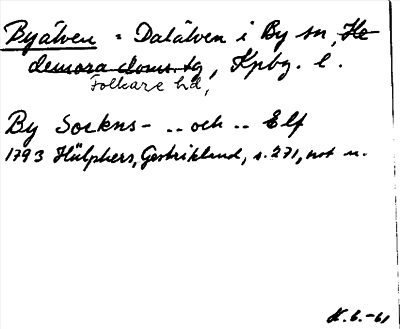 Byälven = Dalälven i By sn, He-
demora doms. tg, Kpbg. l.
Folkare hd,
By Sockns- .. och .. Elf
1793 Hülphers, Gestrikland, s. 271, not u.
K. 6.-61